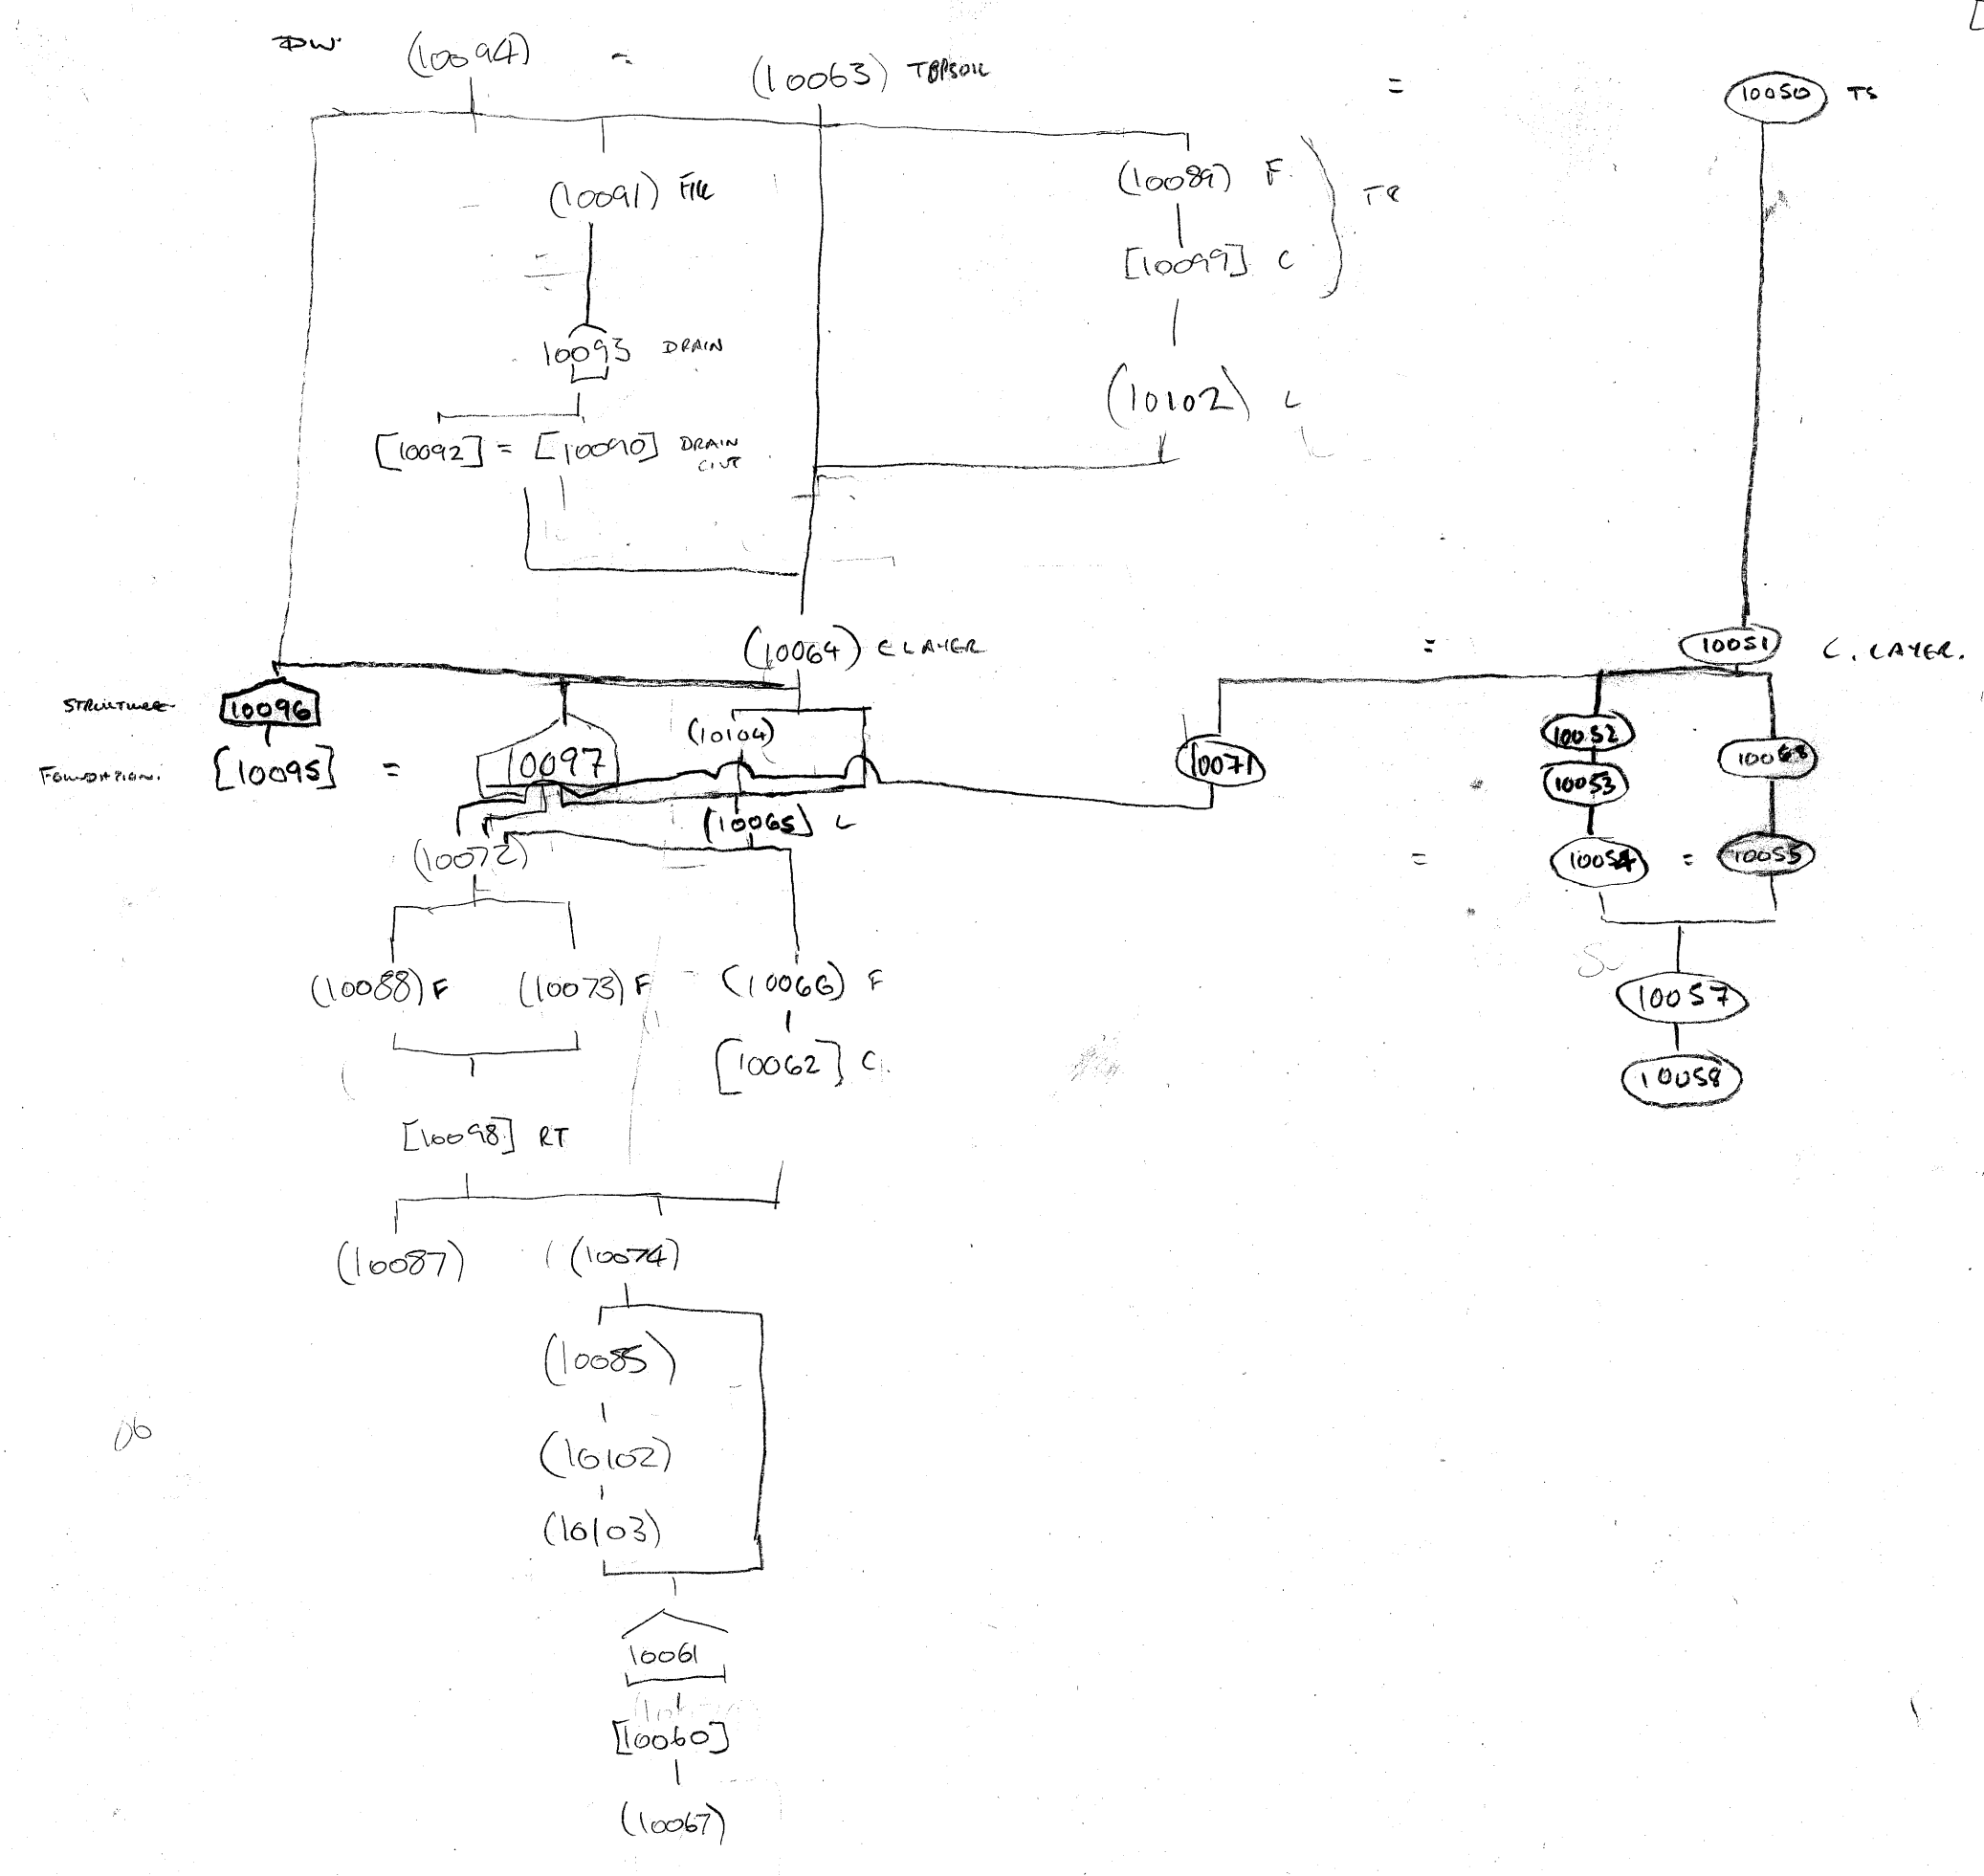 (10094) = (10063) TOPSOIL = 10050 TS
(10091) FILL (10089) F.
[10099] C
10093 DRAIN
(10102) L
[10092] = [10090] DRAIN
CUT
(10064) C LAYER = 10051 C. LAYER.
STRUCTURE 10096 (10104) 10052
FOUNDATION. [10095] = 10097 10071 10053
(10065) L
(10072) = 10054 = 10055
(10088) F (10073) F = (10066) F 10057
[10062] C. 10058
[10098] RT
(10087) (10074)
(10085)
(10102)
(10103)
10061
[10060]
(10067)
06